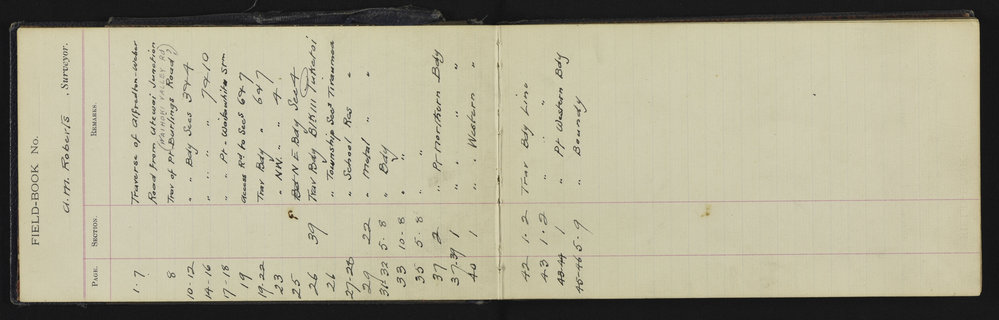 FIELD-BOOK No.
A.M. Roberts, Surveyor.
PAGE. SECTION. REMARKS.
1-7 Traverse of Alfredton-Weber
Road from Utewai Junction
(WAIHOKI VALLEY RD)
8 Trav of Pt Burlings Road?
10-12 " Bdy Secs 3 & 4
14-16 " " " 7 & 10
17-18 " Pt - Waitawhiti Stm
19 access Rd to Secs 6 & 7
19-22 Trav Bdy " 6 & 7
23 " NW. " 4
25 Bdy N E Bdy Sec 4
26 39 Trav Bdy Blk III Tuketoi
26 " Township Secs Tiraumea
27-28 " School Res "
29 22 " Metal " "
31-32 5-8 " Bdy
33 10-8 " "
35 5-8 " "
37 2 " Pt Northern Bdy
37-39 1 " " " "
40 1 " " Western "
42 1-2 Trav Bdy Line
43 1-2 " " "
43-44 1 " Pt Western Bdy
45-46 5-9 " Boundy